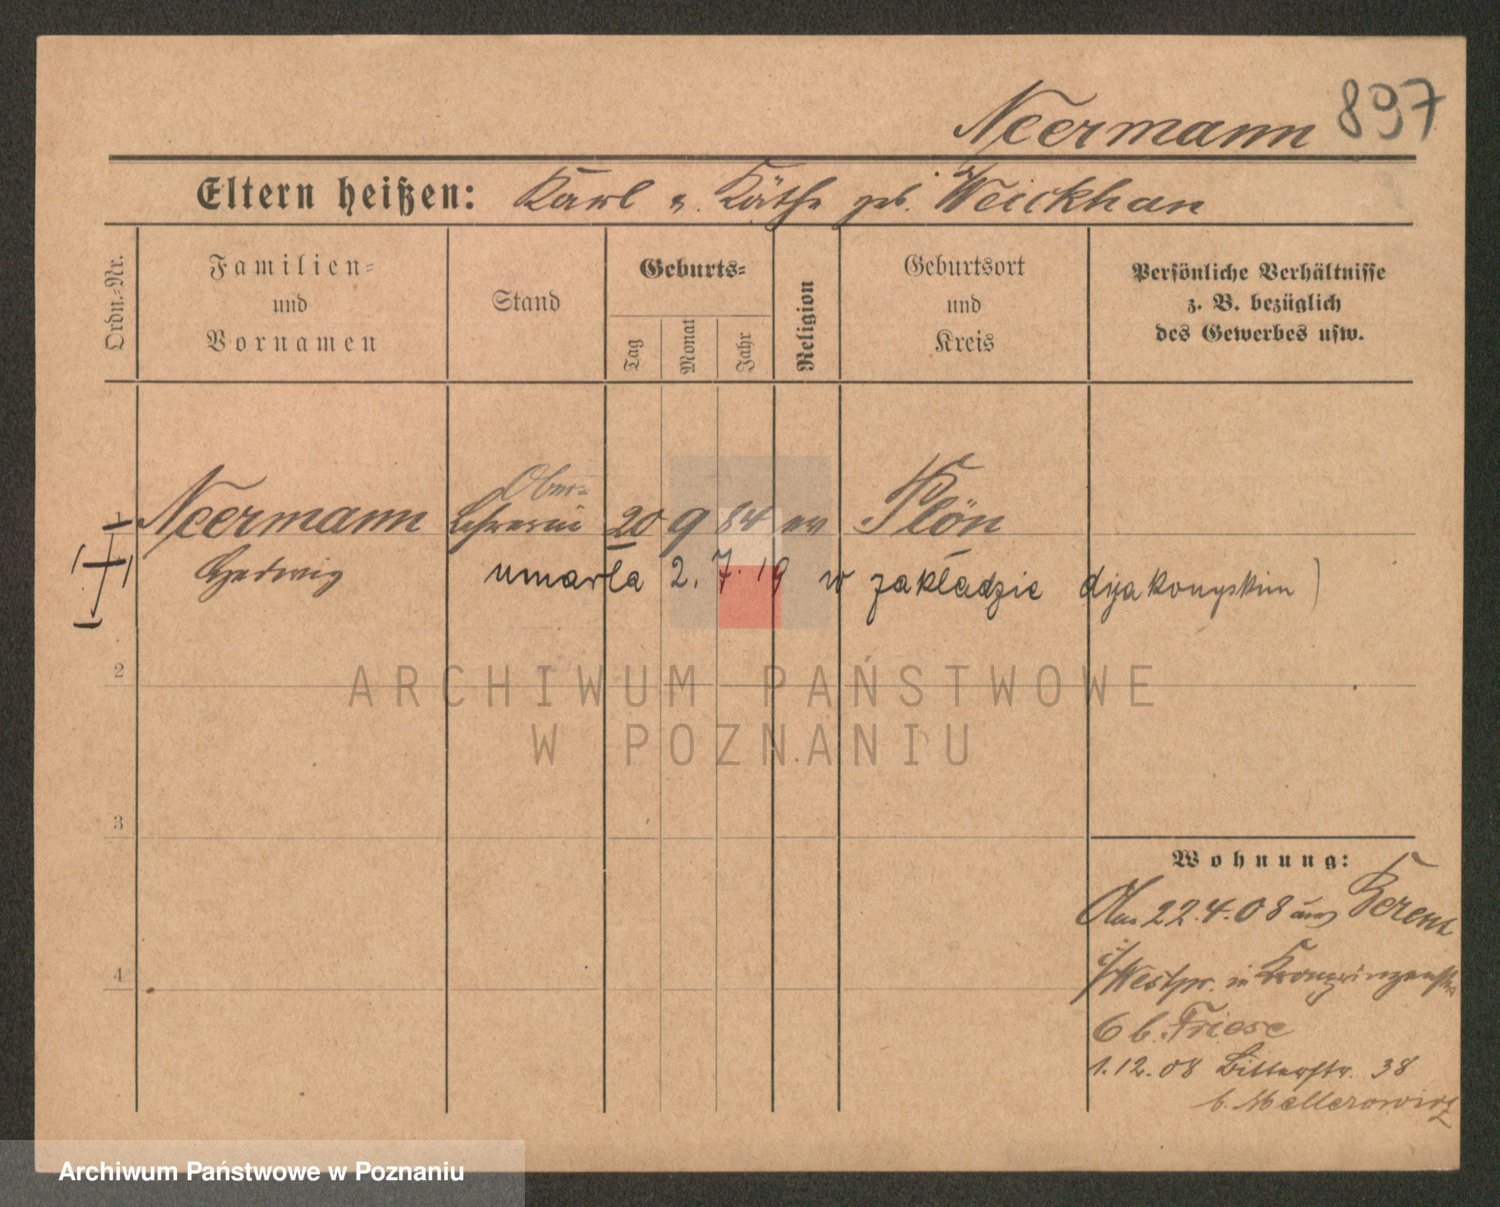 Neermann 897
Eltern heißen: Karl u. Käthe geb. Weickhan
Ordn.-Nr.
Familien-
und
Vornamen
Stand
Geburts-
Tag
Monat
Jahr
Religion
Geburtsort
und
Kreis
Persönliche Verhältnisse
z. B. bezüglich
des Gewerbes usw.
Ober-
1 Neermann Lehrerin 20 9 84 ev Plön
Hedwig umarła 2. 7. 19 w zakładzie dyjakonyskim
2
ARCHIWUM PAŃSTWOWE
W POZNANIU
3
Wohnung:
22.4.08 aus Berent
4
i/Westpr. in Kronprinzenstr
6 b. Friese
1.12.08 Bitterstr. 38
b. Mellerowicz
Archiwum Państwowe w Poznaniu